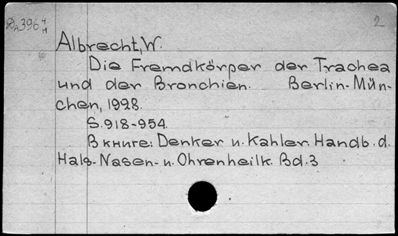 2
Albrecht, W.
Die Fremdkörper der Trachea
und der Bronchien. Berlin-Mün-
chen, 1928.
S.918-954.
В книге: Denker u. Kahler. Handb. d.
Hals-Nasen- u. Ohrenheilk. Bd. 3